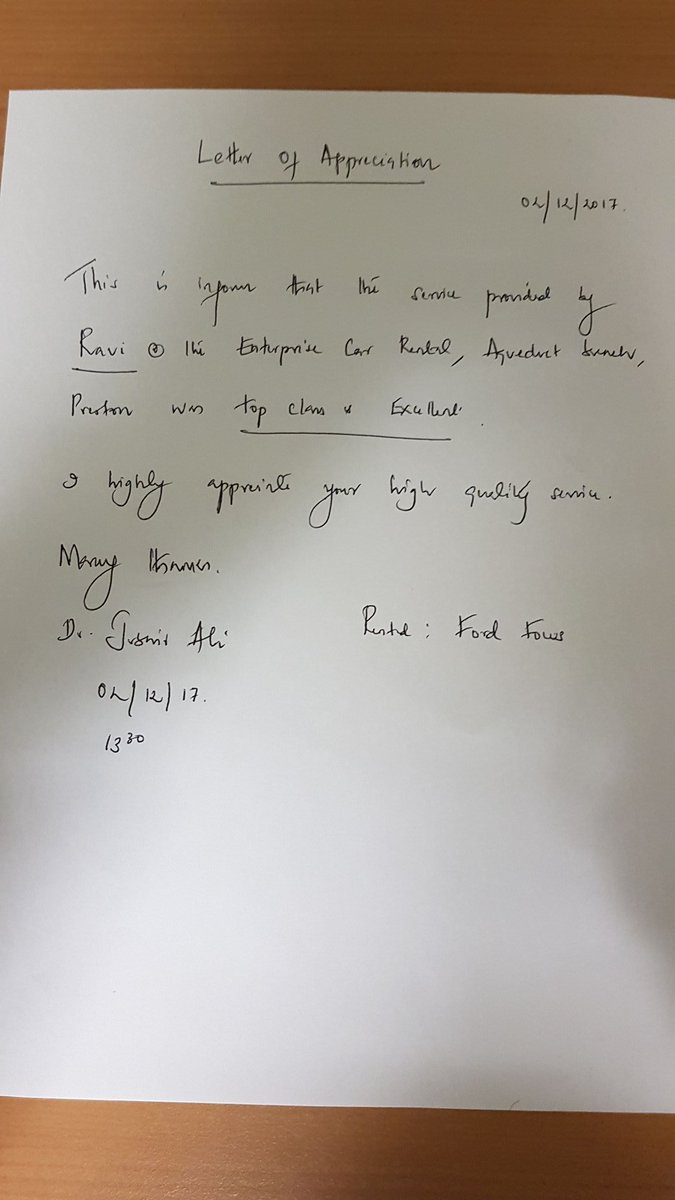 Letter of Appreciation
04/12/2017.
This is inform that the service provided by
Ravi @ the Enterprise Car Rental, Aqueduct Street,
Preston was top class & Excellent.
I highly appreciate your high quality service.
Many thanks.
Dr. Ali
Rental: Ford Focus
04/12/17.
1330